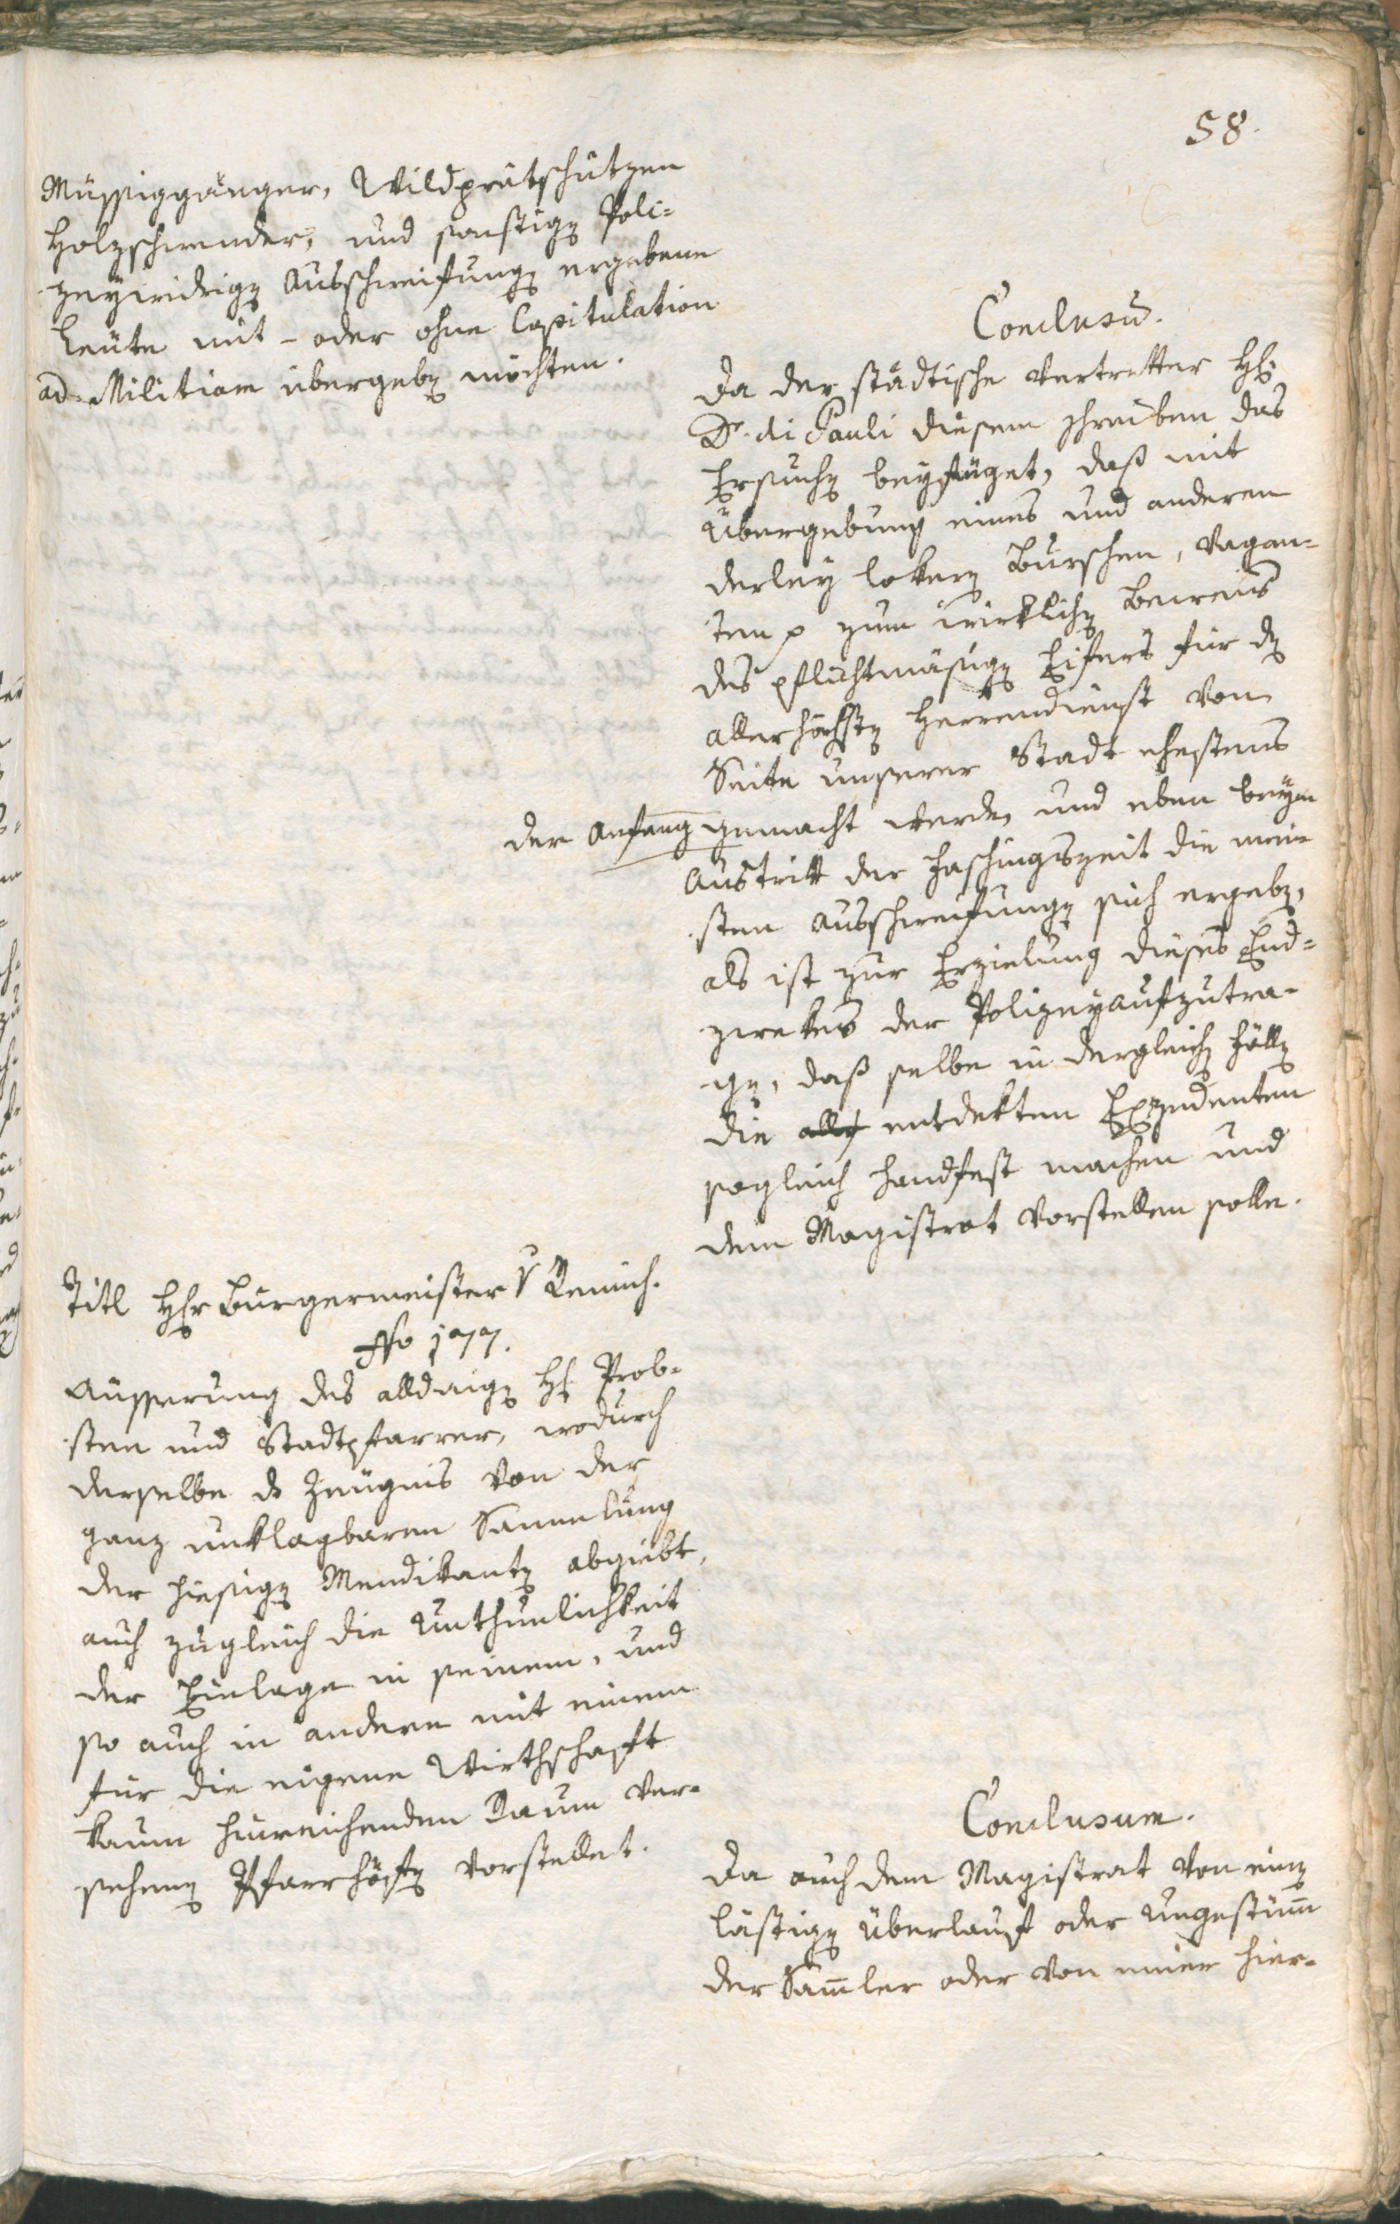 58.
Müssiggänger, Wildprätschützen
Holzschwender, und sonstige Poli-
zeywidrige Ausschweifunge ergebene
Leüte mit - oder ohne Capitulation
ad Militiam übergeben möchten.
Conclusū.
Da der städtische Vertretter Hr.
Dr. di Pauli diesem schreiben das
Ersuchen beyfüget, daß mit
Übergebung eines und anderen
derley lokeren Burschen, Vagan-
ten zum wirklichen Beweis
des pflichtmäsigen Eifers für den
allerhöchsten Herrendienst von
Seite unserer Stadt ehestens
der Anfang gemacht werde, und eben beym
Austritt der Faschingszeit die mei-
sten Ausschweifungen sich ergeben,
als ist zur Erzielung dieses End-
zwekes der Polizey aufzutra-
gen, daß selbe in dergleichen Fällen
die entdekten Exzedenten
sogleich handfest machen und
dem Magistrat vorstellen solle.
Titl Herr Burgermeister v Remich.
No 1777.
Äusserung des alldaigen H. Prob-
sten und Stadtpfarrer, wodurch
derselbe de Zeügnis von der
ganz unklagbaren Sammlung
der hiesigen Mendikanten abgiebt,
auch zugleich die Unthunlichkeit
der Einlage in seinem, und
so auch in andern mit einem
für die eigene Wirthschaft
kaum hinreichenden Raum ver-
sehenen Pfarrhöfen vorstellet.
Conclusum.
Da auch dem Magistrat von einem
lästigen Überlauf oder Ungestüm̄
der Sam̄ler oder von einer hier-